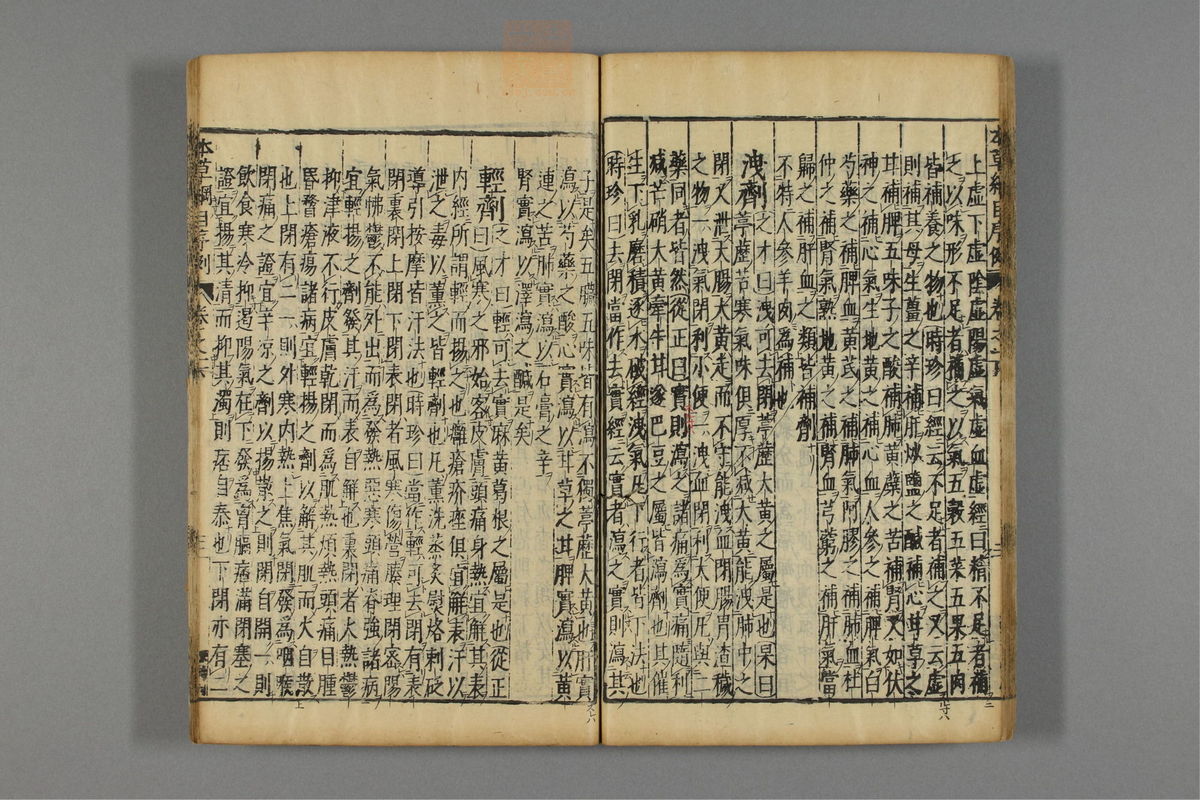 上虛下虛陰虛陽虛氣虛血虛經曰精不足者補
之以味形不足者補之以氣五穀五菜五果五肉
皆補養之物也時珍曰經云不足者補之又云虛
則補其母生薑之辛補肝炒鹽之鹹補心甘草之
甘補脾五味子之酸補肺黃蘗之苦補腎又如伏
神之補心氣生地黃之補心血人參之補脾氣白
芍藥之補脾血黃芪之補肺氣阿膠之補肺血杜
仲之補腎氣熟地黃之補腎血芎藭之補肝氣當
歸之補肝血之類皆補劑
不特人參羊肉為補也
洩劑之才曰洩可去閉葶藶大黃之屬是也杲曰
葶藶苦寒氣味俱厚不減大黃能洩肺中之
閉又泄大腸大黃走而不守能洩血閉腸胃渣穢
之物一洩氣閉利小便一洩血閉利大便凡與二
藥同者皆然從正曰實則瀉之諸痛為實痛隨利
減苦硝大黃牽牛甘遂巴豆之屬皆瀉劑也其催
生下乳磨積逐水破經洩氣凡下行者皆下法也
時珍曰去閉當作去實經云實者瀉之實則瀉其
子是矣五臟五味皆有瀉不獨葶藶大黃也肝實
瀉以芍藥之酸心實瀉以甘草之甘脾實瀉以黃
連之苦肺實瀉以石膏之辛
腎實瀉以澤瀉之鹹是矣
輕劑之才曰輕可去實麻黃葛根之屬是也從正
曰風寒之邪始客皮膚頭痛身熱宜解其表
內經所謂輕而揚之也癰瘡疥痤俱宜解表汗以
泄之毒以薰之皆輕劑也凡薰洗蒸炙熨烙刺砭
導引按摩皆汗法也時珍曰當作輕可去閉有表
閉裏閉上閉下閉表閉者風寒傷營腠理閉密陽
氣怫鬱不能外出而為發熱惡寒頭痛脊強諸病
宜輕揚之劑發其汗而表自解也裏閉者火熱鬱
抑津液不行皮膚乾閉而為肌熱煩熱頭痛目腫
昏瞀瘡瘍諸病宜輕揚之劑以解其肌而火自散
也上閉有二一則外寒內熱上焦氣閉發為咽喉
閉痛之證宜辛涼之劑以揚散之則閉自開一則
飲食寒冷抑遏陽氣在下發為胷膈痞滿閉塞之
證宜揚其清而抑其濁則痞自泰也下閉亦有二
本草綱目序例
卷之